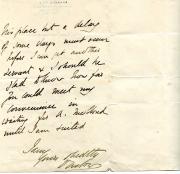 place but a delay
of some days must occur
before I can get another
servant & I should be
glad to know how far
you could meet my
convenience in
waiting for a
until I am suited
Yours